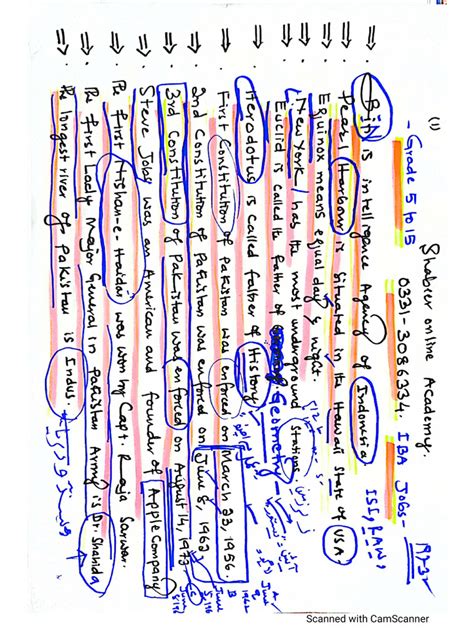 (1) Shabier online Academy.
- Grade 5 to 15 0331-3086334. IBA Jobs-
ISI, RAW,
⇒ BiN is intelligence Agency of Indonesia
⇒ Pearl Harbour is situated in the Hawaii State of USA
⇒ Equinox means equal day & night.
⇒ New York has the most underground Stations.
⇒ Euclid is called the father of Geometry
⇒ Herodotus is called father of History
⇒ First Constitution of Pakistan was enforced on March 23, 1956.
⇒ 2nd Constitution of Pakistan was enforced on June 8, 1962.
⇒ 3rd Constitution of Pakistan was enforced on August 14, 1973
⇒ Steve Jobs was an American and founder of Apple Company
⇒ The first Nishan-e-Haider was won by Capt. Raja Sarwar.
⇒ The first Lady Major General in Pakistan Army is Dr. Shahida
⇒ The longest river of Pakistan is Indus.
Scanned with CamScanner